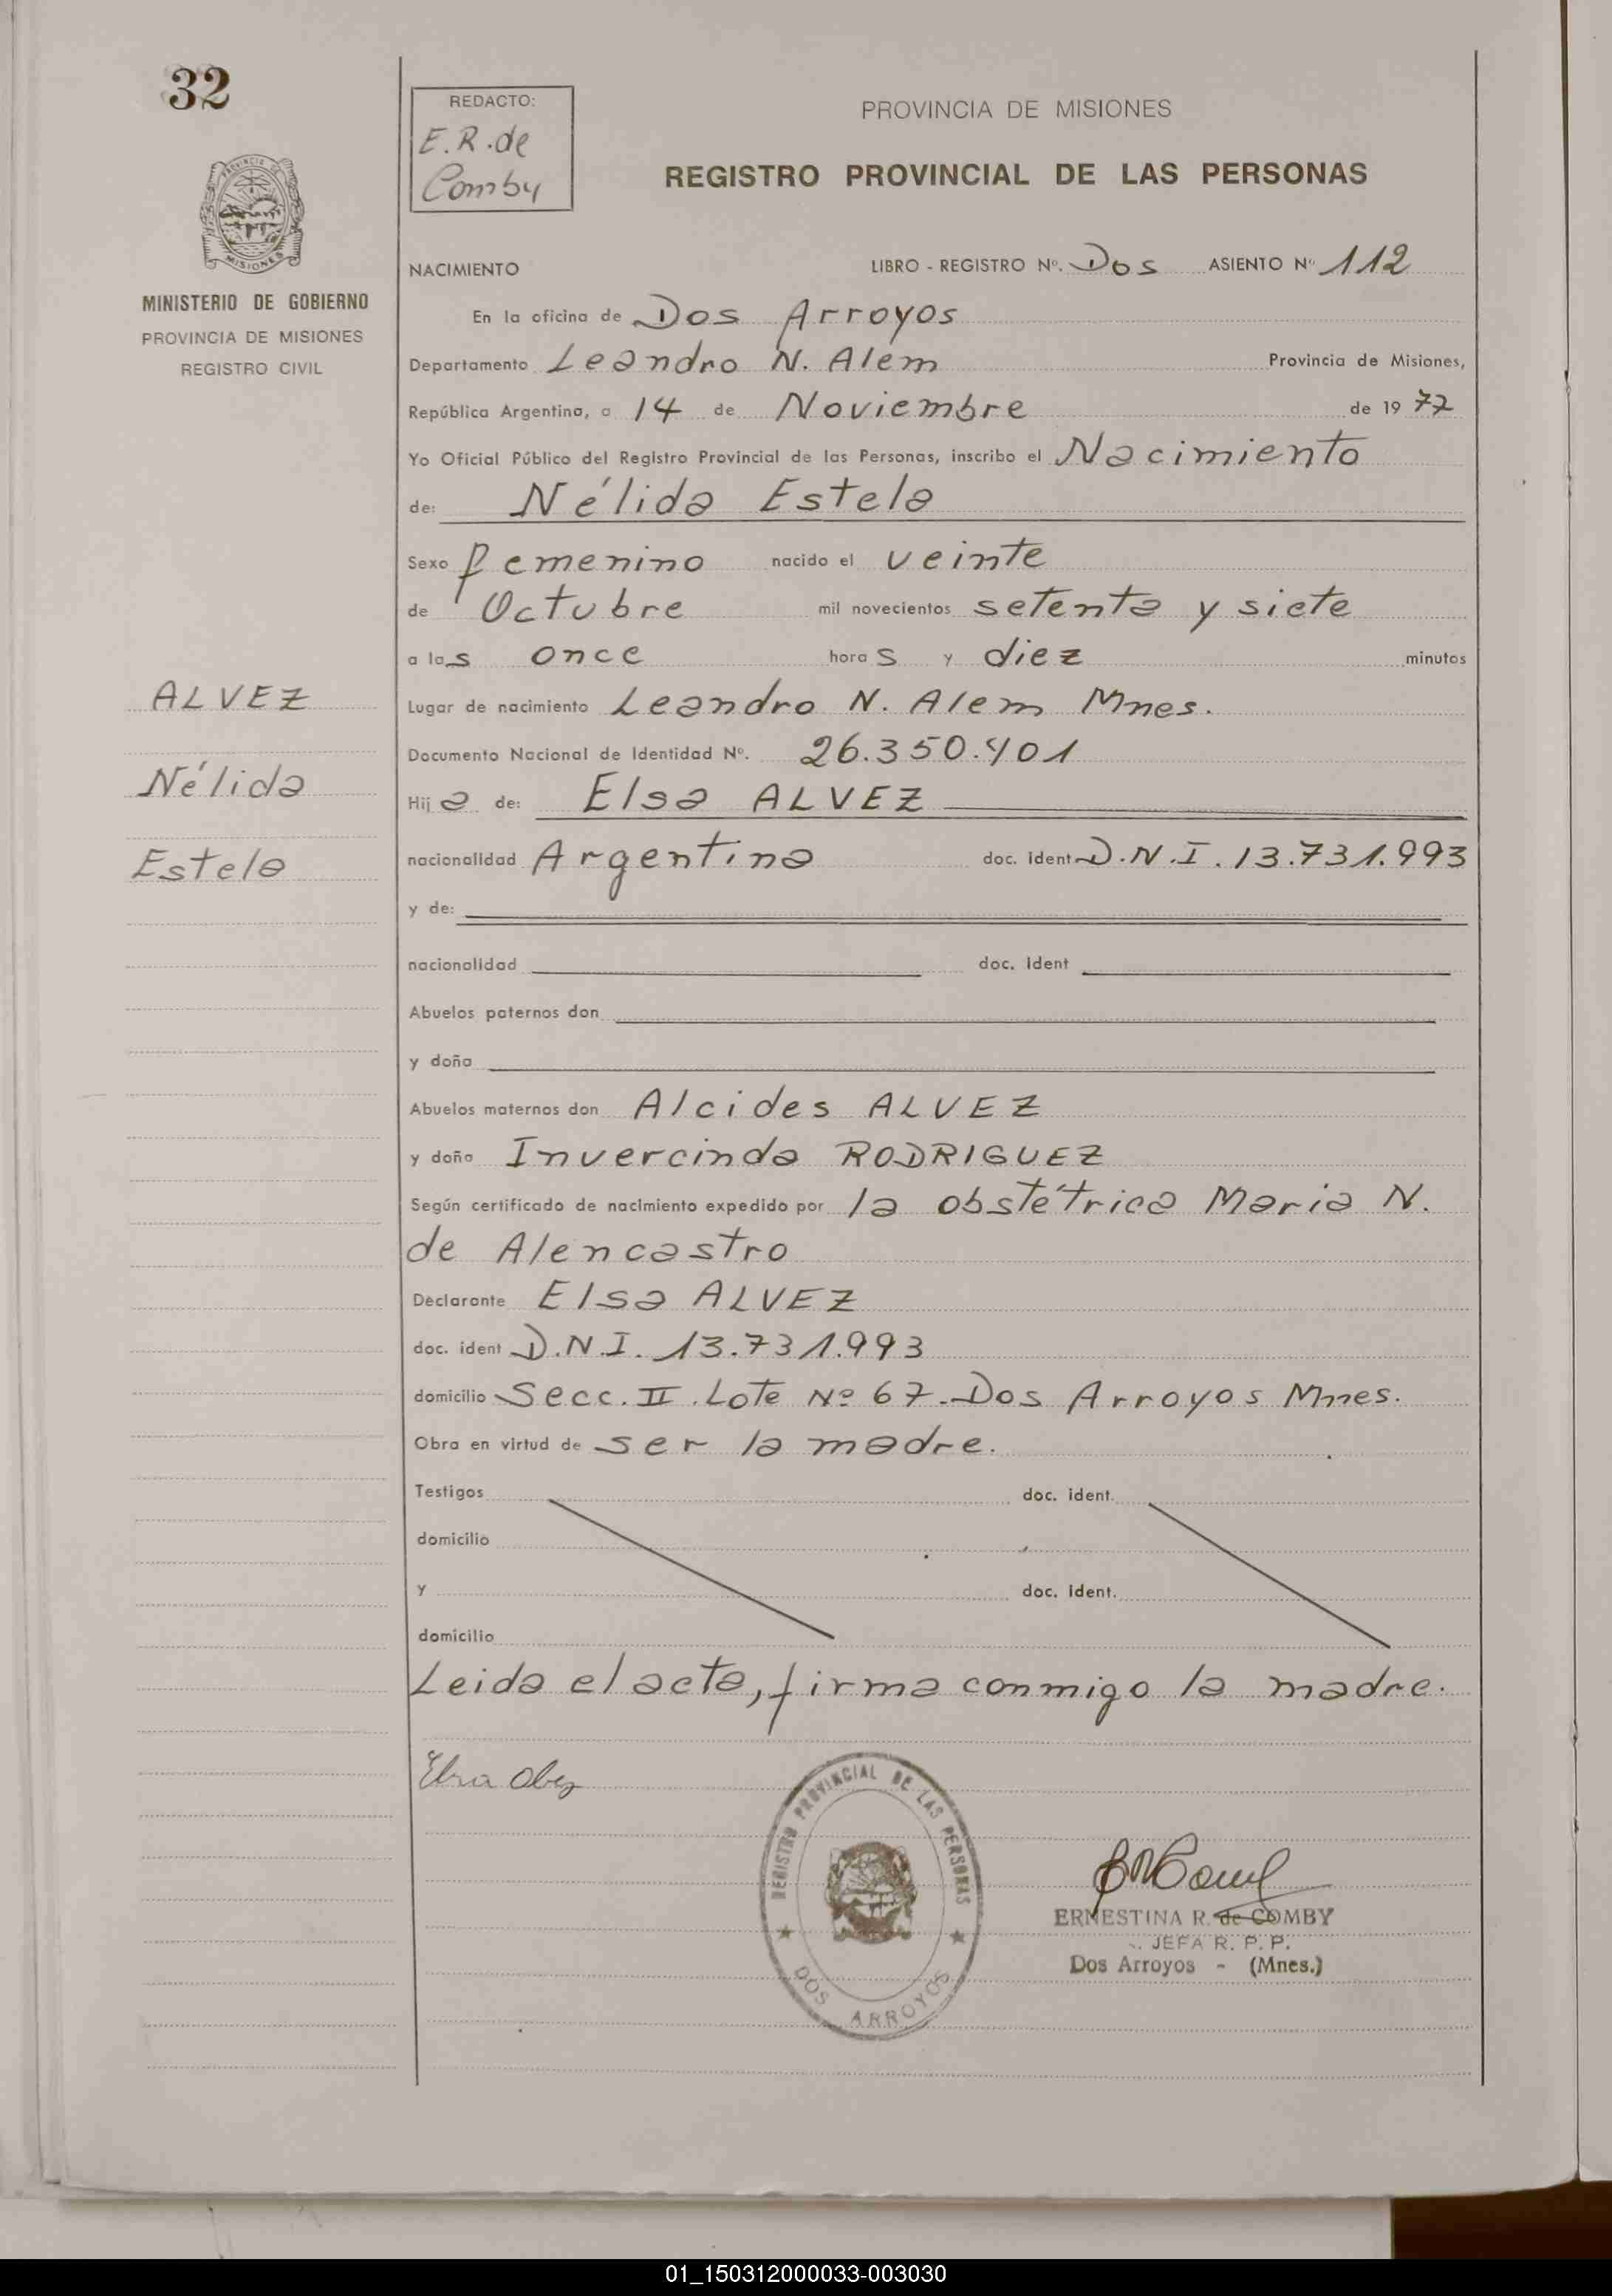 32
REDACTO:
E.R. de
Comby
PROVINCIA DE MISIONES
REGISTRO PROVINCIAL DE LAS PERSONAS
PROVINCIA
MISIONES
MINISTERIO DE GOBIERNO
PROVINCIA DE MISIONES
REGISTRO CIVIL
NACIMIENTO LIBRO - REGISTRO Nº. Dos ASIENTO Nº 112
En la oficina de Dos Arroyos
Departamento Leandro N. Alem Provincia de Misiones,
República Argentina, a 14 de Noviembre de 1977
Yo Oficial Público del Registro Provincial de las Personas, inscribo el Nacimiento
de: Nélida Estela
Sexo femenino nacido el veinte
de Octubre mil novecientos setenta y siete
a las once horas y diez minutos
ALVEZ
Nélida
Estela
Lugar de nacimiento Leandro N. Alem Mnes.
Documento Nacional de Identidad Nº. 26.350.401
Hija de: Elsa ALVEZ
nacionalidad Argentina doc. ident D.N.I. 13.731.993
y de:
nacionalidad doc. ident
Abuelos paternos don
y doña
Abuelos maternos don Alcides ALVEZ
y doña Invercinda RODRIGUEZ
Según certificado de nacimiento expedido por la obstétrica Maria N.
de Alencastro
Declarante Elsa ALVEZ
doc. ident D.N.I. 13.731.993
domicilio Secc. II. Lote Nº 67.Dos Arroyos Mnes.
Obra en virtud de ser la madre.
Testigos doc. ident.
domicilio
y doc. ident.
domicilio
Leida el acta, firma conmigo la madre.
REGISTRO PROVINCIAL DE LAS PERSONAS
DOS ARROYOS
ERNESTINA R. de COMBY
JEFA R. P. P.
Dos Arroyos - (Mnes.)
01_150312000033-003030